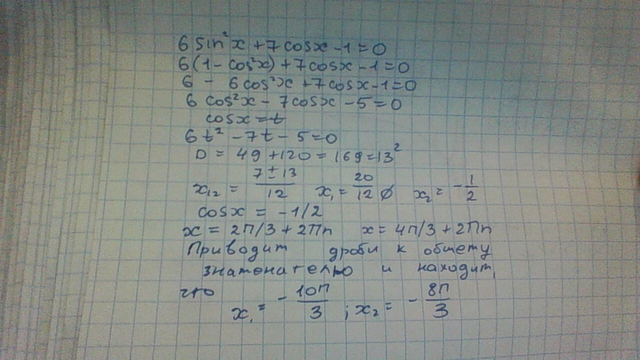 6 sin²x + 7 cosx - 1 = 0
6(1 - cos²x) + 7 cosx - 1 = 0
6 - 6 cos²x + 7 cosx - 1 = 0
6 cos²x - 7 cosx - 5 = 0
cosx = t
6t² - 7t - 5 = 0
D = 49 + 120 = 169 = 13²
x₁₂ = (7 ± 13)/12 x₁ = 20/12 ∅ x₂ = -1/2
cosx = -1/2
x = 2П/3 + 2Пn x = 4П/3 + 2Пn
Приводит дроби к общему
знаменателю и находит,
что
x₁ = -10П/3 ; x₂ = -8П/3